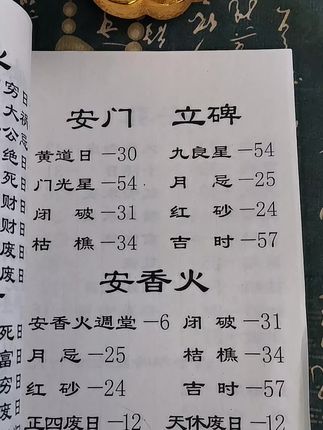 安门 立碑
黄道日—30 九良星—54
门光星—54 月忌—25
闭破—31 红砂—24
枯樵—34 吉时—57
安香火
安香火週堂—6 闭破—31
月忌—25 桔樵—34
红砂—24 吉时—57
正四废日—12 天休废日—12
火
穷日
大祸
公忌
绝日
死日
财日
财日
废日
废日
死日
富日
穷日
废日